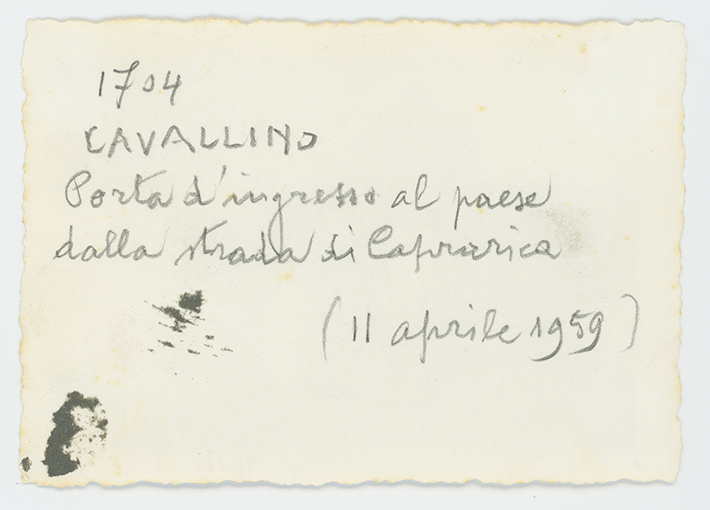 1704
CAVALLINO
Porta d'ingresso al paese
dalla strada di Caprarica
(11 aprile 1959)